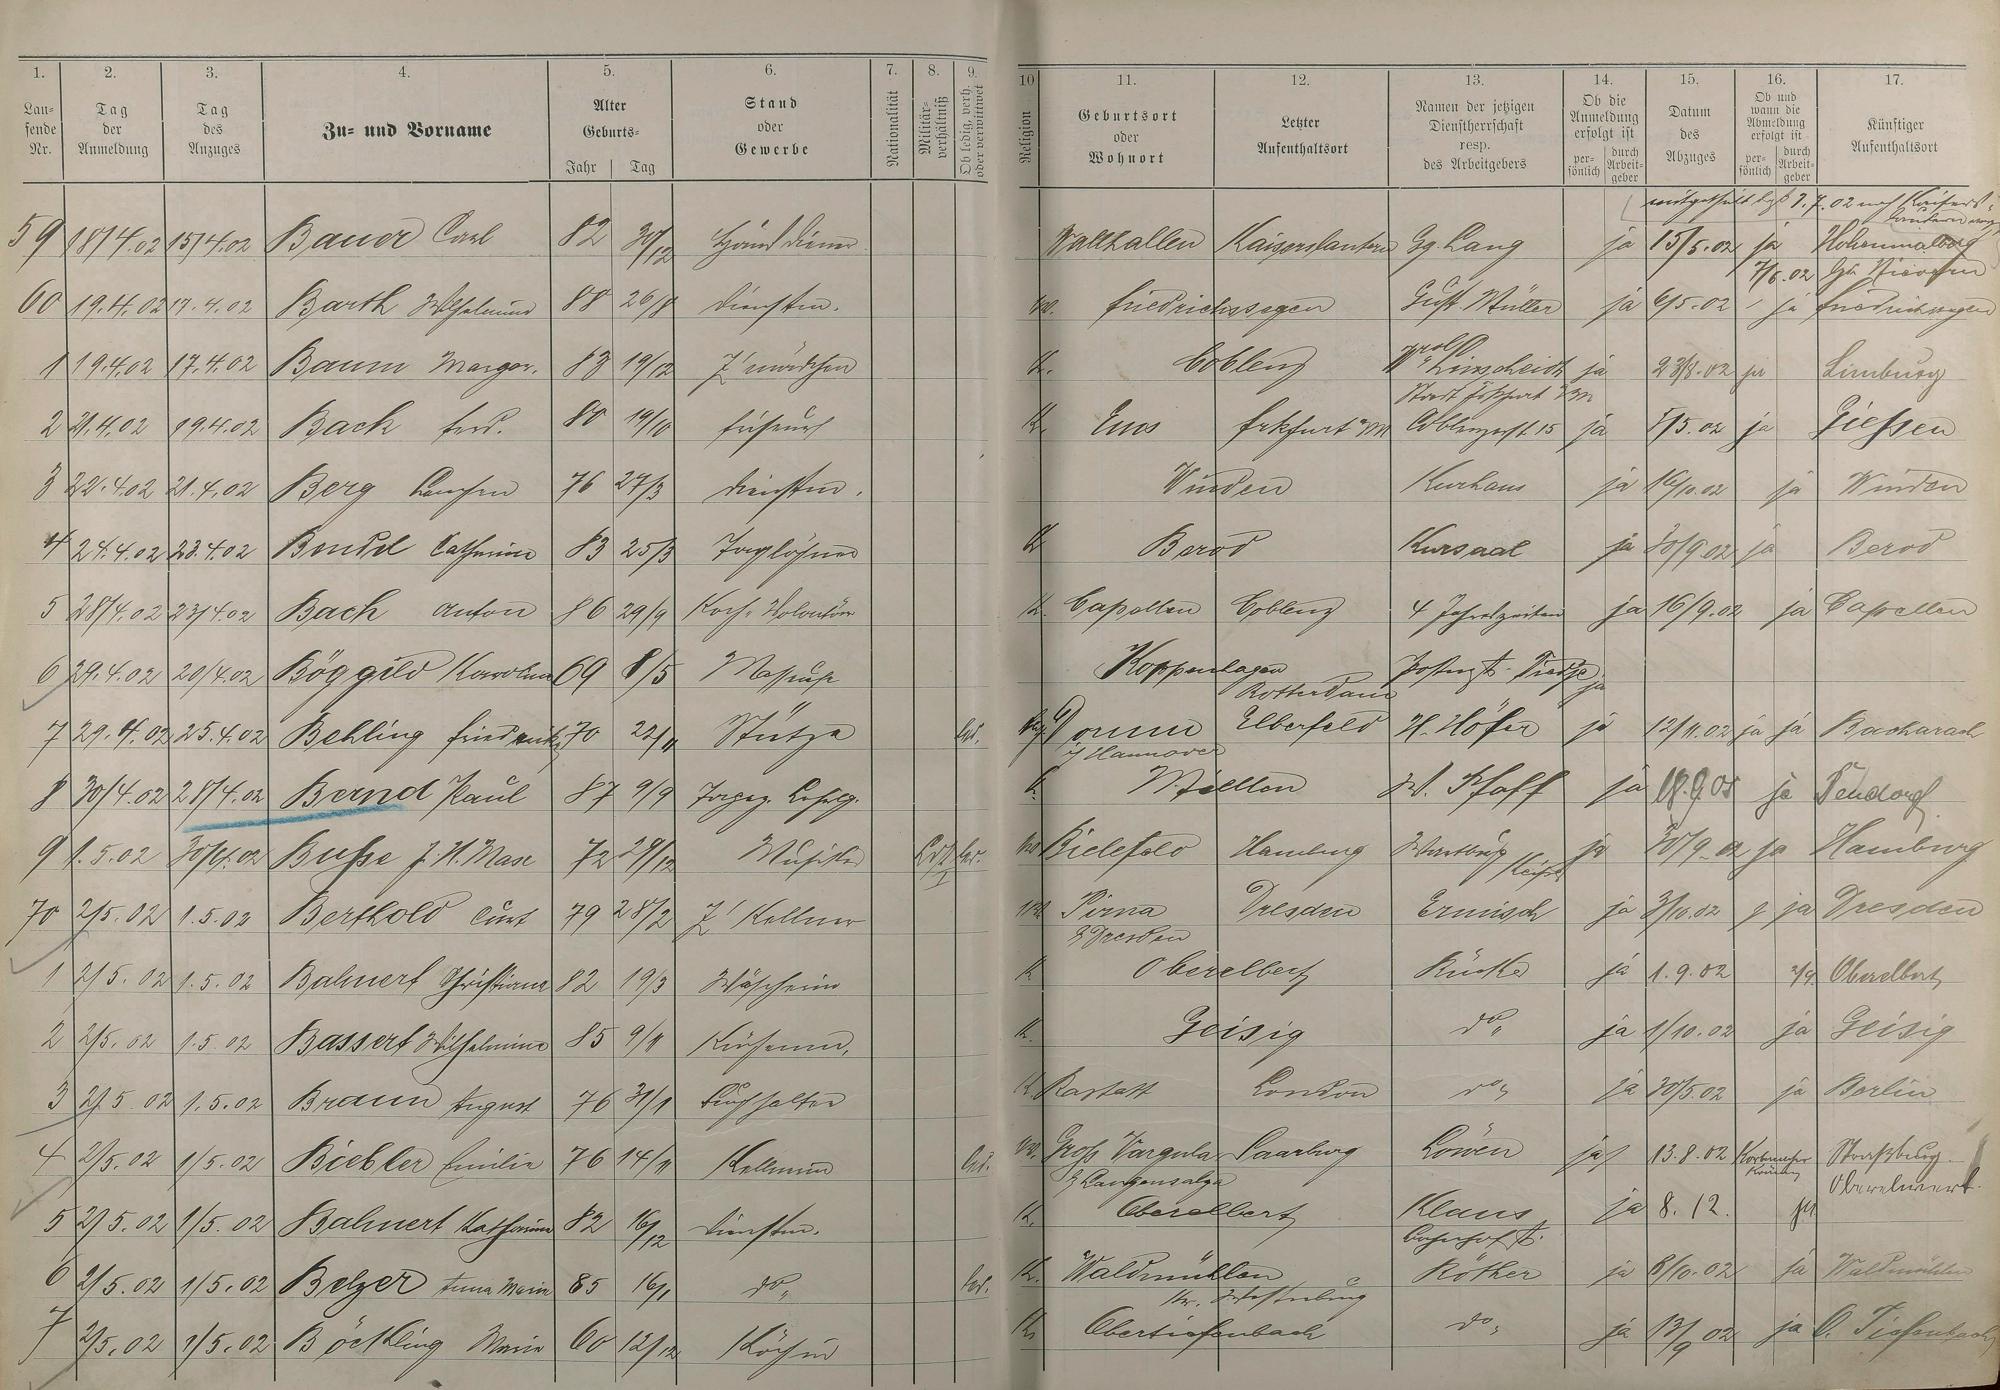 1. 2. 3. 4. 5. 6. 7. 8. 9. 10 11. 12. 13. 14. 15. 16. 17.
Lau-
fende
Nr.
Tag
der
Anmeldung
Tag
des
Anzuges
Zu- und Vorname
Alter
Geburts-
Jahr Tag
Stand
oder
Gewerbe
Nationalität
Militär-
verhältniß
Ob ledig, verh.
oder verwittwet
Religion
Geburtsort
oder
Wohnort
Letzter
Aufenthaltsort
Namen der jetzigen
Dienstherrschaft
resp.
des Arbeitgebers
Ob die
Anmeldung
erfolgt ist
per-
sönlich
durch
Arbeit-
geber
Datum
des
Abzuges
Ob und
wann die
Abmeldung
erfolgt ist
per-
sönlich
durch
Arbeit-
geber
Künftiger
Aufenthaltsort
59 18/4.02 15/4.02 Bauer Carl 82 30/12 Hausdiener Wallhallen Kaiserslautern Gg. Lang ja 15/5.02 ja
7/6.02
60 19.4.02 17.4.02 Barth Wilhelmine 88 26/8 Dienstm. Friedrichssegen Gust Müller ja 6/5.02 ja Friedrichssegen
1 19.4.02 17.4.02 Baum Margar. 83 19/12 Z'mädchen K. Coblenz Linscheidt ja 23/8.02 ja Limburg
2 21.4.02 19.4.02 Bach Ferd. 80 19/10 Friseur K. Ems Frkfurt a/M Coblenzerst. 15 ja 5/5.02 ja Giessen
3 22.4.02 21.4.02 Berg Lenchen 76 27/3 Dienstm. Winden Kurhaus ja 16/10.02 ja Winden
4 24.4.02 23.4.02 Bendel Catharine 83 25/3 Taglöhner K Berod Kursaal ja 30/9.02 ja Berod
5 28/4.02 23/4.02 Bach Anton 86 29/9 Koch-Volontär K. Capellen Coblenz 4 Jahreszeiten ja 16/9.02 ja Capellen
6 29.4.02 20/4.02 Böggild Karoline 69 8/5 Masseuse Koppenhagen ja
Rotterdam
7 29.4.02 25.4.02 Behling Friedrike 70 22/11 Stütze led. Dorum Elberfeld H. Höfer ja 12/11.02 ja ja Bacharach
i/Hannover
8 30/4.02 28/4.02 Bernd Paul 87 9/9 K. Miellen W. Pfaff ja ja
9 1.5.02 30/4.02 Busse J. H. Max 72 29/12 Musiker led. Bielefeld Hamburg ja 30/9.02 ja Hamburg
70 2/5.02 1.5.02 Berthold Curt 79 28/2 Z' Kellner Pirna Dresden Ermisch ja 3/10.02 ja Dresden
b/Dresden
1 2/5.02 1.5.02 Bahnert Christiane 82 19/3 Wäscherin K Oberelbert Rücker ja 1.9.02 Oberelbert
2 2/5.02 1.5.02 Bassert Wilhelmine 85 9/11 K. Geisig do„ ja 1/10.02 ja Geisig
3 2/5.02 1.5.02 Braun August 76 31/1 Buchhalter K. Rastatt London do„ ja 30/5.02 ja Berlin
4 2/5.02 1/5.02 Biebler Emilie 76 14/11 Kellnerin led. Gross Vargula Saarburg Löwen ja 13.8.02 Strassburg
b/Langensalza
5 2/5.02 1/5.02 Bahnert Katharina 82 16/12 Dienstm. K. Oberelbert Klaus ja 8.12. ja Oberelbert.
6 2/5.02 1/5.02 Belzer Anna Maria 85 16/1 do„ led. K. Waldmühlen Röther ja 8/10.02 ja Waldmühlen
Kr. Westerburg
7 2/5.02 1/5.02 Böckling Maria 60 12/12 Köchin K. Obertiefenbach do„ ja 13/9 02 ja O. Tiefenbach